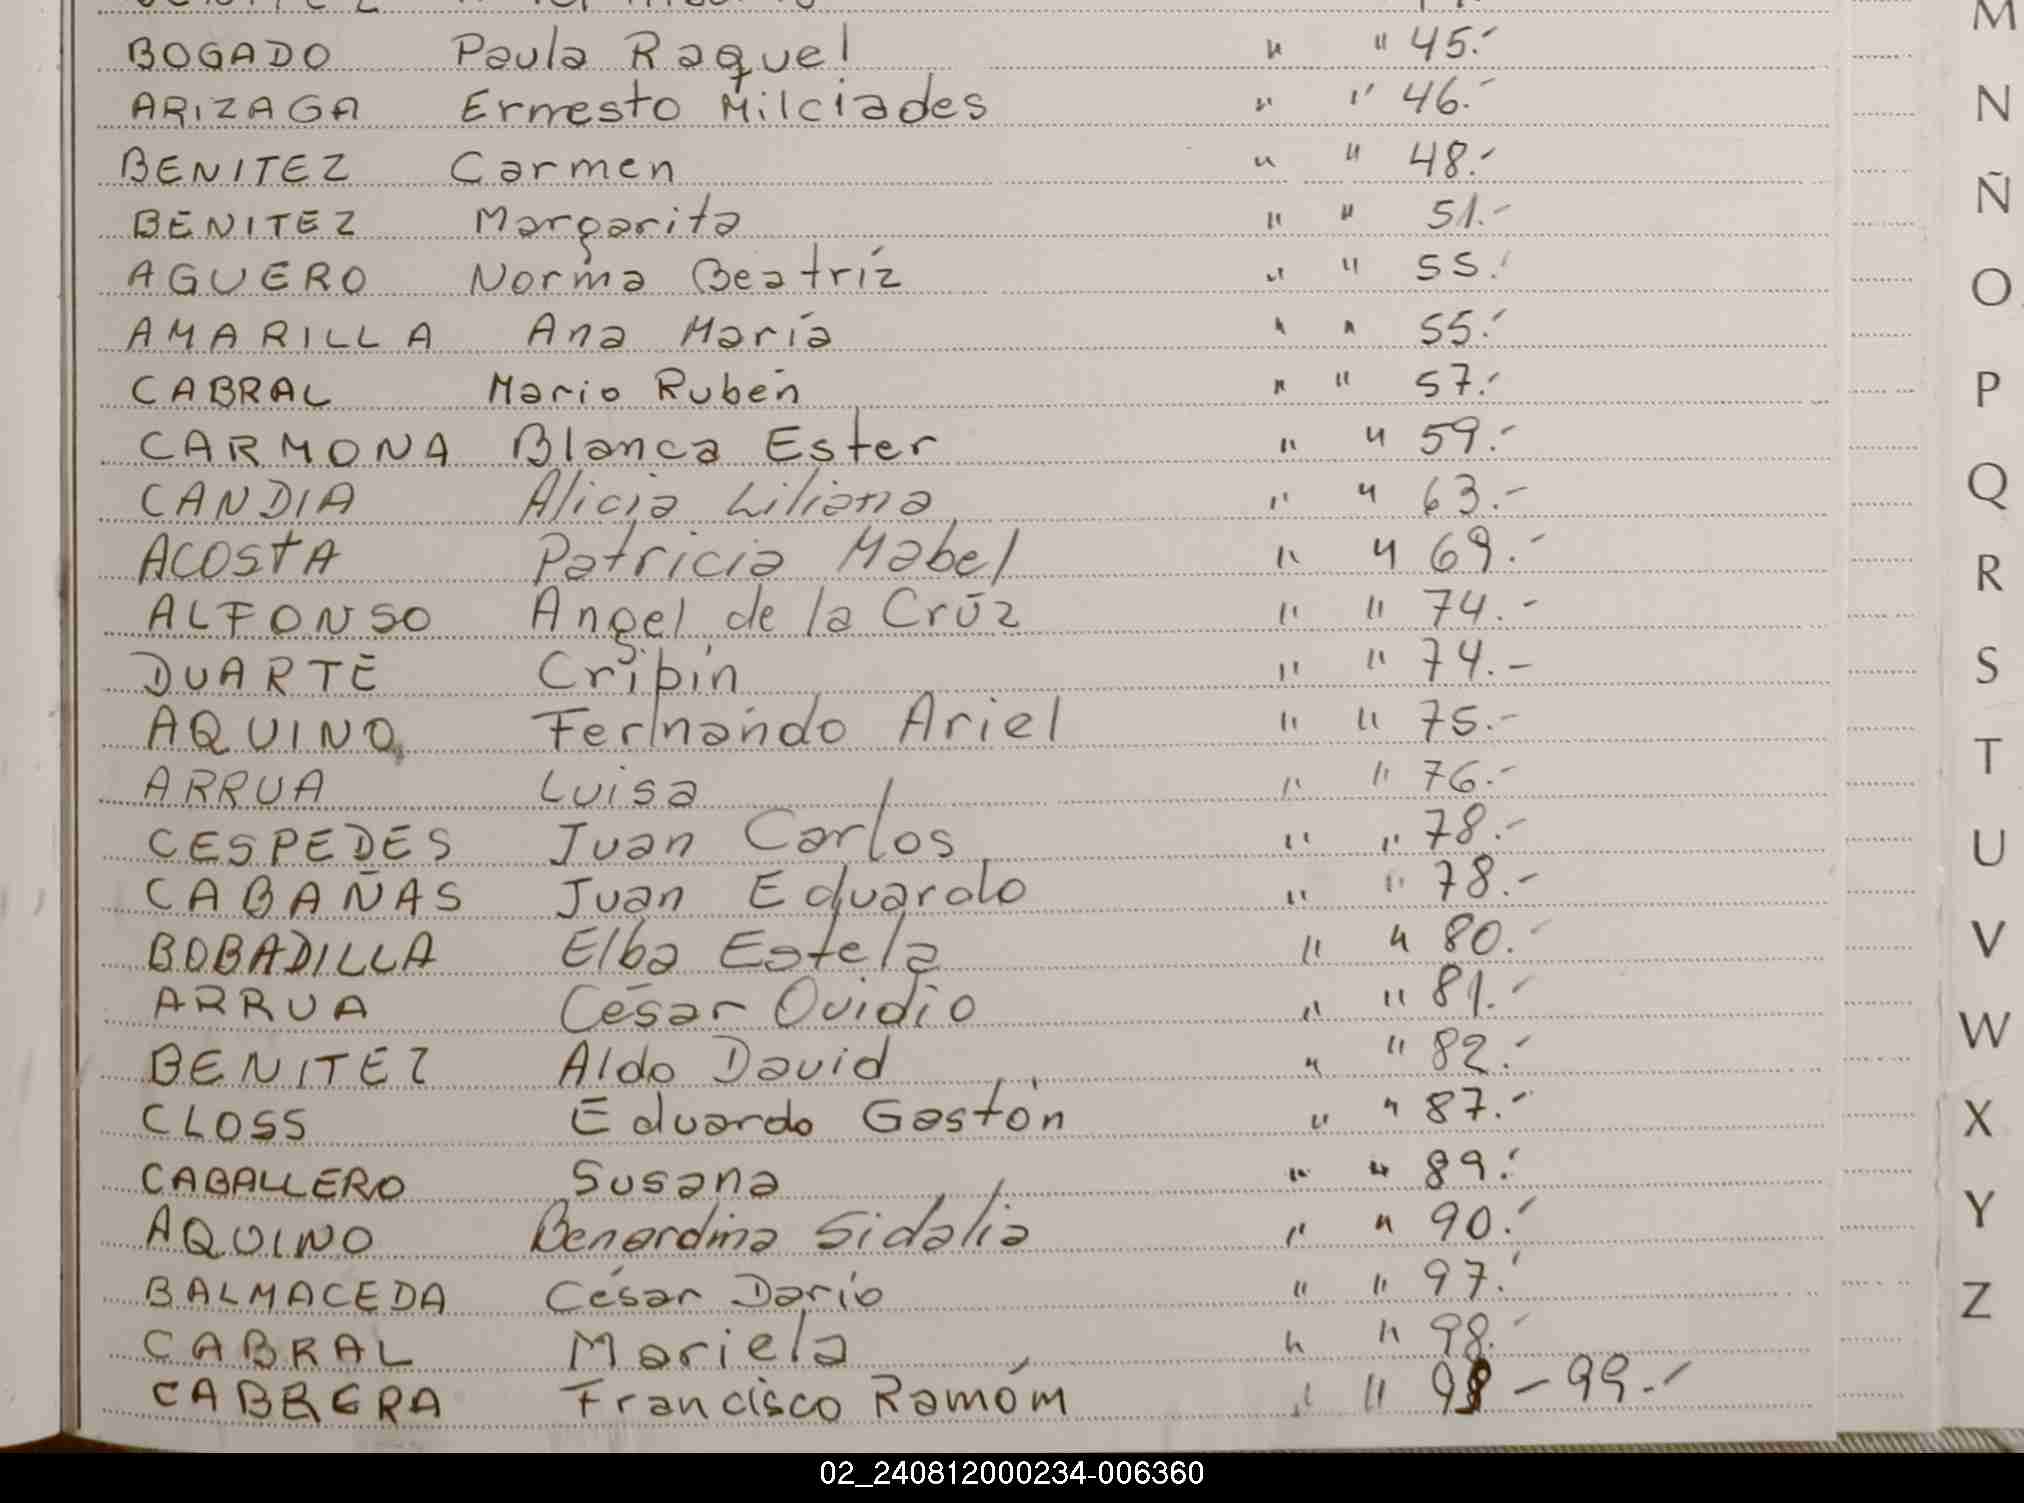 BOGADO Paula Raquel " " 45.-
ARIZAGA Ernesto Milciades " " 46.-
BENITEZ Carmen " " 48.-
BENITEZ Margarita " " 51.-
AGUERO Norma Beatríz " " 55.-
AMARILLA Ana María " " 55.-
CABRAL Mario Rubén " " 57.-
CARMONA Blanca Ester " " 59.-
CANDIA Alicia Liliana " " 63.-
ACOSTA Patricia Mabel " " 69.-
ALFONSO Angel de la Crúz " " 74.-
DUARTE Cripín " " 74.-
AQUINO Fernando Ariel " " 75.-
ARRUA Luisa " " 76.-
CESPEDES Juan Carlos " " 78.-
CABAÑAS Juan Eduardo " " 78.-
BOBADILLA Elba Estela " " 80.-
ARRUA César Ovidio " " 81.-
BENITEZ Aldo David " " 82.-
CLOSS Eduardo Gastón " " 87.-
CABALLERO Susana " " 89.-
AQUINO Benardina Sidalia " " 90.-
BALMACEDA César Darío " " 97.-
CABRAL Mariela " " 98.-
CABRERA Francisco Ramóm " " 98 - 99.-
M
N
Ñ
O
P
Q
R
S
T
U
V
W
X
Y
Z
02_240812000234-006360